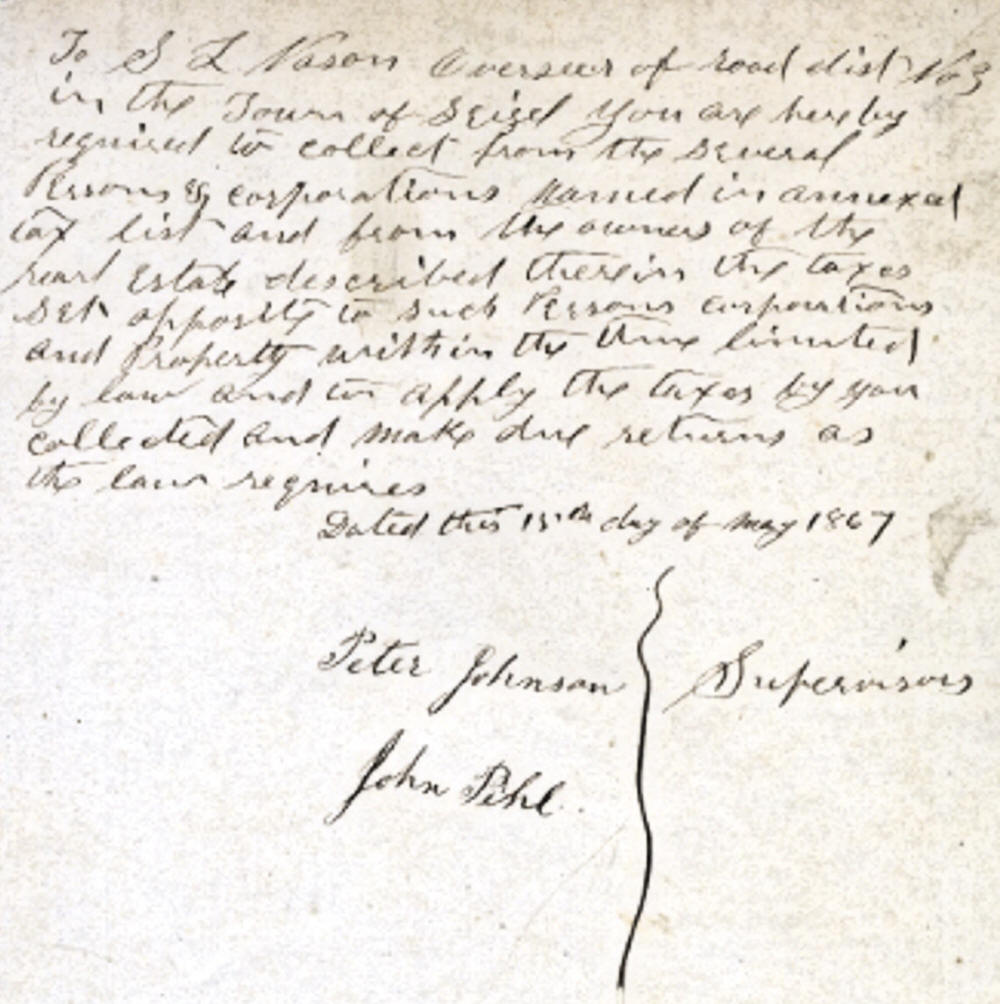 To S L Nason Overseer of road dist No 3
in the Town of Seigel you are hereby
required to collect from the several
Persons & corporations named in annexed
tax list and from the owners of the
real Estate described therein the taxes
set opposite to such Persons corporations
and Property within the time limited
by law and to apply the taxes by you
collected and make due returns as
the law requires
Dated this 15th day of may 1867
Peter Johnson
Supervisors
John Pihl.